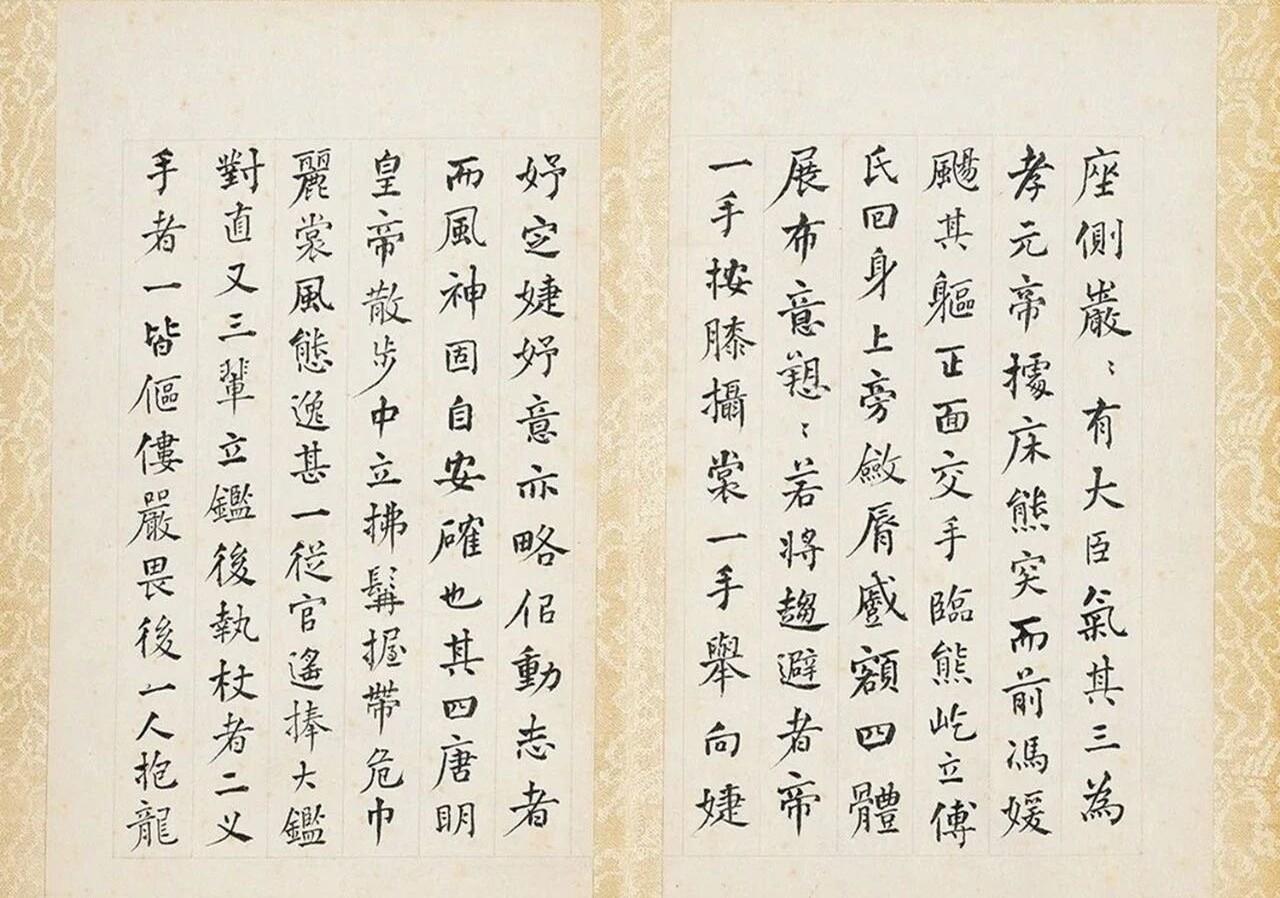 座側巖〻有大臣氣其三為
孝元帝據床熊突而前馮媛
颺其軀正面交手臨熊屹立傅
氏回身上旁斂脣蹙額四體
展布意愳〻若將趨避者帝
一手按膝攝裳一手舉向婕
妤定婕妤意亦略佀動志者
而風神固自安確也其四唐明
皇帝散步中立拂髯握帶危巾
麗裳風態逸甚一從官遙捧大鑑
對直又三輩立鑑後執杖者二义
手者一皆傴僂嚴畏後一人抱龍